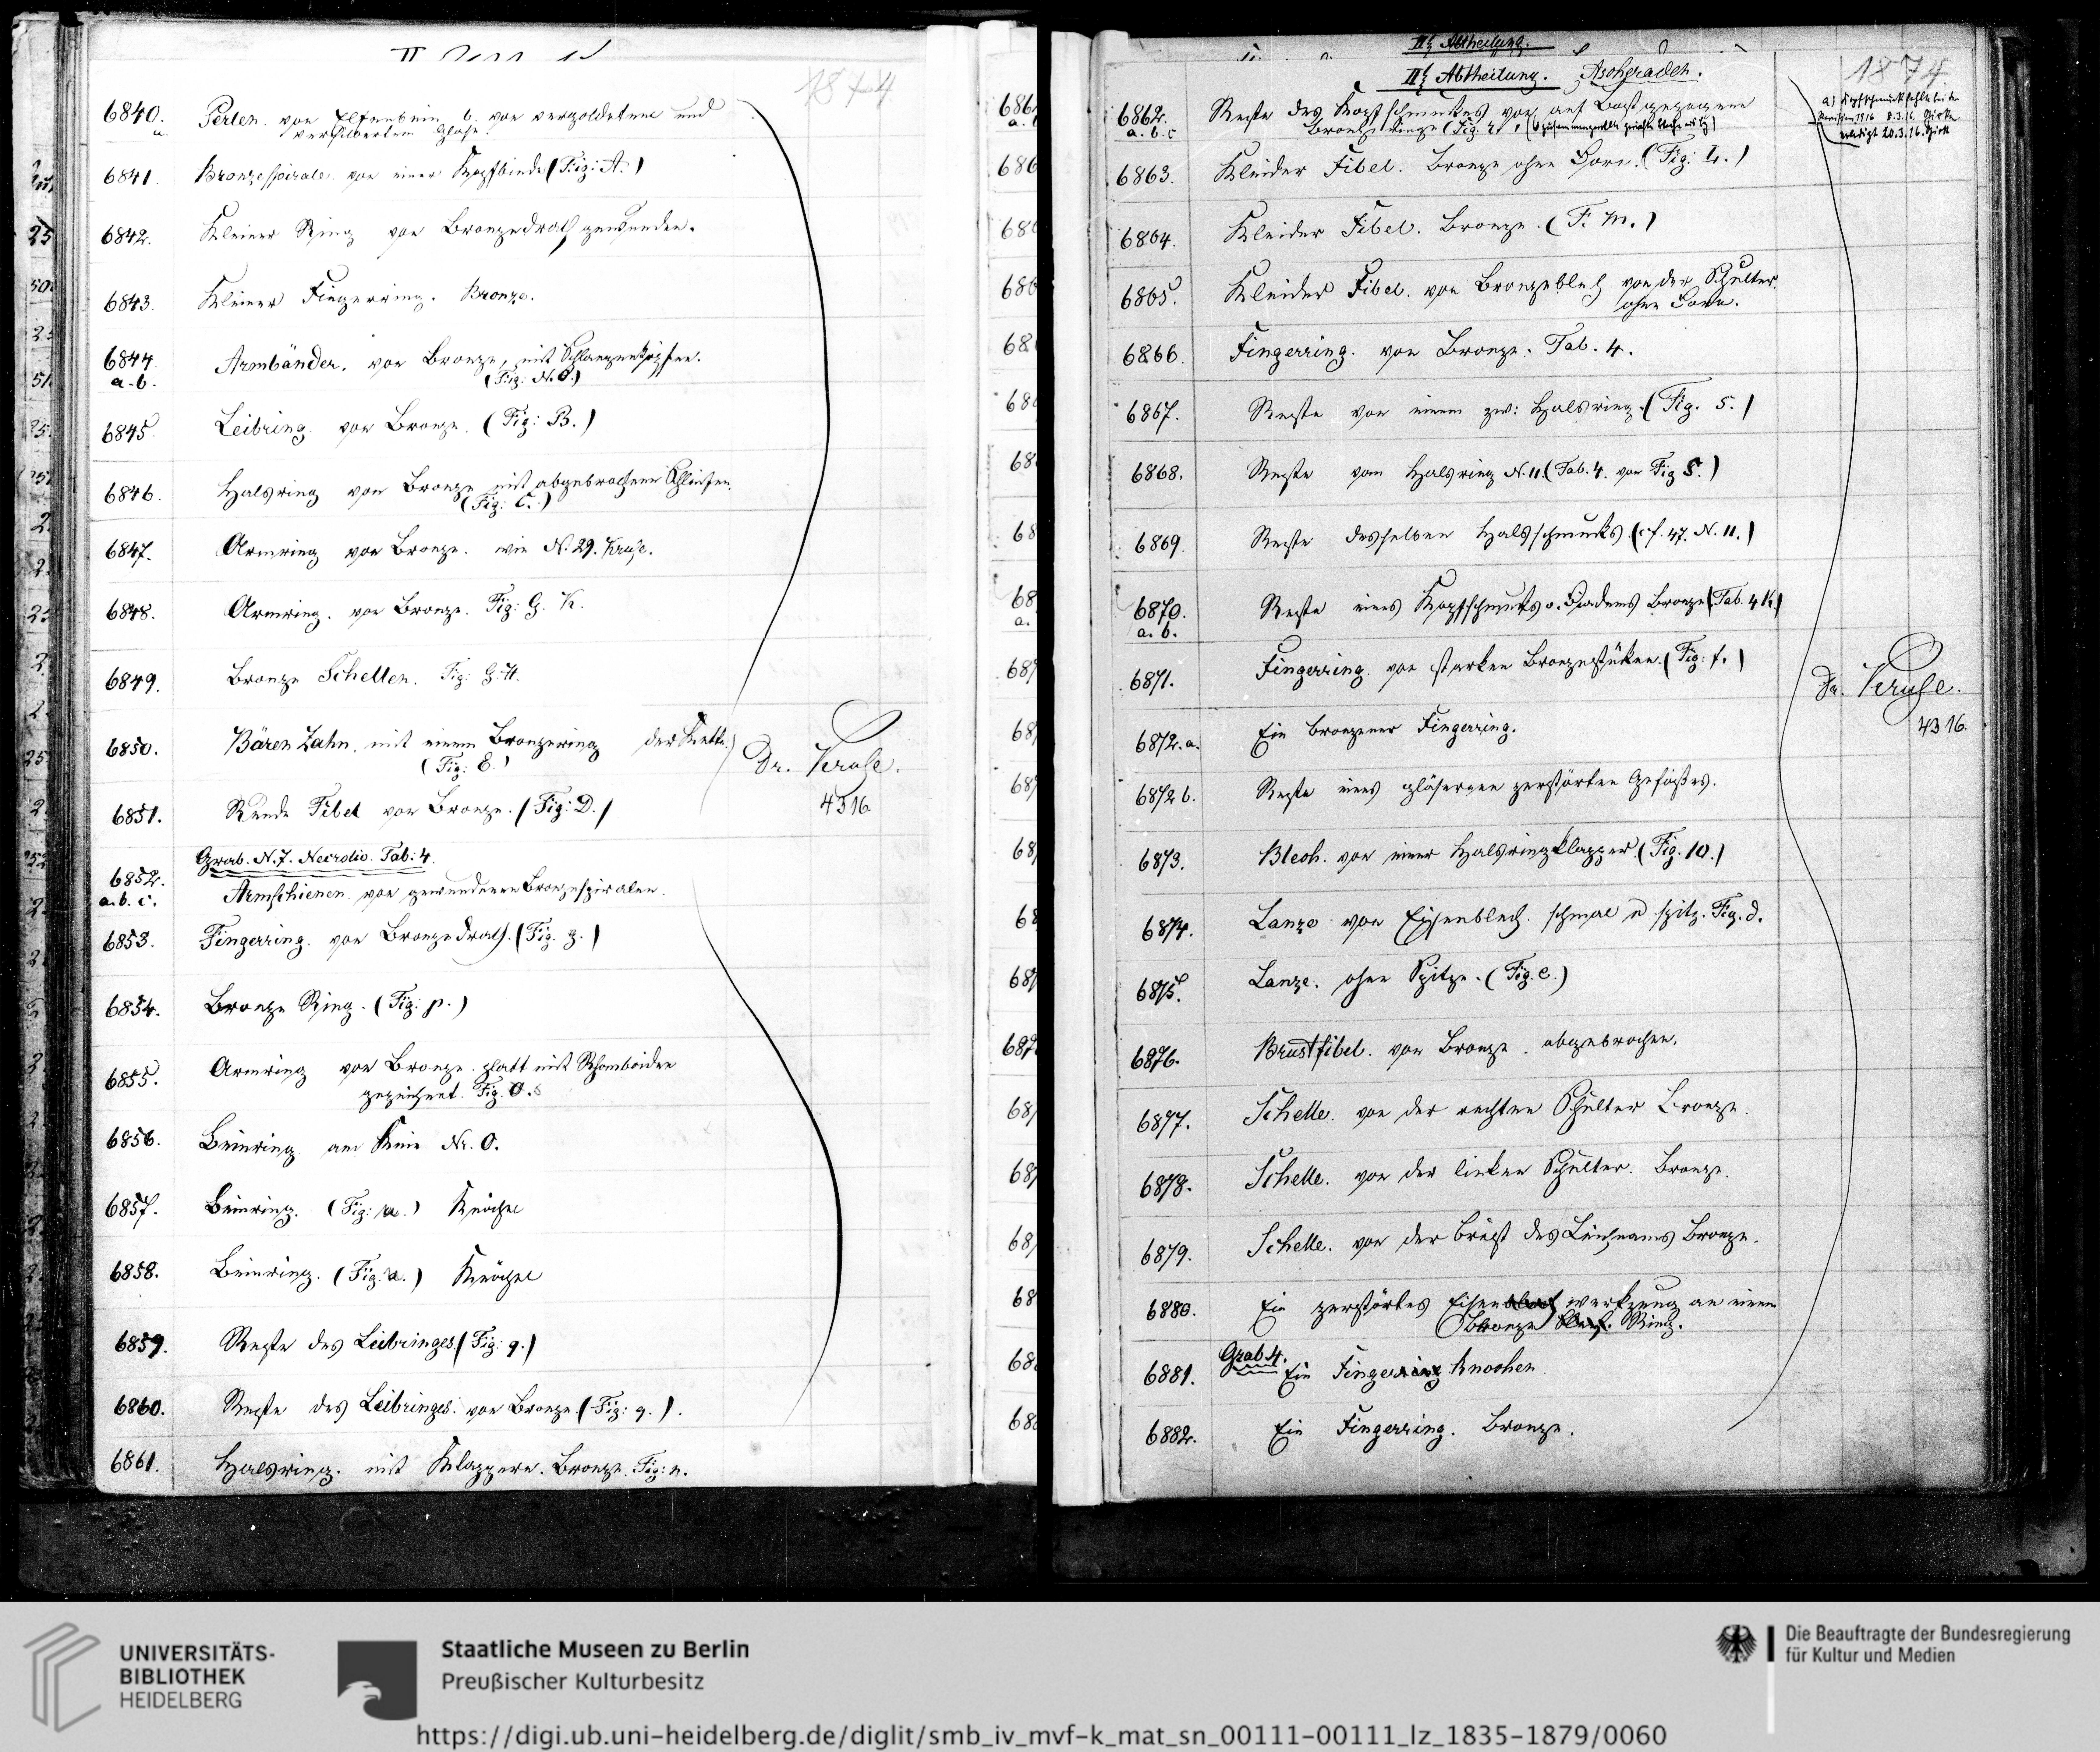 1874
6840. Perlen. von Elfenbein b. von vergoldetem und
a. versilbertem Glase.
6841. Bronzespirale von einer Kopfbinde (Fig: A.)
6842. Kleiner Ring von Bronzedrath gewunden.
6843. Kleiner Fingerring. Bronze.
6844. Armbänder. von Bronze, mit Schlangenköpfen.
a. b. (Fig: N.O.)
6845. Leibring. von Bronze. (Fig: B.)
6846. Halsring von Bronze mit abgebrochenen Schleifen.
(Fig: C.)
6847. Armring von Bronze. wie N. 29. Kruse.
6848. Armring. von Bronze. Fig: G. K.
6849. Bronze Schellen. Fig: G.H.
6850. Bären Zahn. mit einem Bronzering der Kette.
(Fig: E.)
Dr. Kruse.
4316
6851. Runde Fibel von Bronze. (Fig: D.)
Grab. N. 7. Tab: 4.
6852. Armschienen. von gewundenen Bronzespiralen.
a. b. c.
6853. Fingerring. von Bronzedrath. (Fig. g.)
6854. Bronze Ring. (Fig: p.)
6855. Armring von Bronze. platt mit Rhomboiden
gezeichnet. Fig. O.
6856. Beinring am Knie Nr. O.
6857. Beinring. (Fig: a.) Knöchel
6858. Beinring. (Fig. a.) Knöchel
6859. Reste des Leibringes (Fig: q.)
6860. Reste des Leibringes. von Bronze. (Fig: q.).
6861. Halsring. mit Klappern. Bronze. Fig: n.
II. Abtheilung.
II. Abtheilung. Ascheraden.
1874
6862. Reste des Kopfschmuckes von auf Bast gezogene
a. b. c. Bronze Ringe (Fig. r.
a) Kopfschmuck fehlte bei der
Revision 1916 8.3.16.
erledigt 20.3.16.
6863. Kleider Fibel. Bronze ohne Dorn. (Fig: L.)
6864. Kleider Fibel. Bronze. (F. M.)
6865. Kleider Fibel. von Bronzeblech von der Schulter.
ohne Dorn.
6866. Fingerring. von Bronze. Tab. 4.
6867. Reste von einem zw: Halsring. (Fig. 5.)
6868. Reste vom Halsring N. 11. (Tab. 4. von Fig 5.)
6869. Reste desselben Halsschmucks. (cf. 47. N. 11.)
6870. Reste eines Kopfschmucks o. Diadems Bronze (Tab. 4 K.)
a. b.
6871. Fingerring. von starken Bronzestücken. (Fig: f.)
Dr. Kruse.
4316.
6872. a. Ein bronzener Fingerring.
6872 b. Reste eines gläsernen zerstörten Gefäßes.
6873. Blech. von einer Halsringklapper. (Fig. 10.)
6874. Lanze von Eisenblech. schmal u spitz. Fig. d.
6875. Lanze. ohne Spitze. (Fig. e.)
6876. Brustfibel. von Bronze. abgebrochen.
6877. Schelle. von der rechten Schulter Bronze.
6878. Schelle. von der linken Schulter. Bronze.
6879. Schelle. von der Brust des Leichnams Bronze.
6880. Ein zerstörtes Eisen werkzeug an einem
Bronze Ring.
Grab 4.
6881. Ein Finger Knochen.
6882. Ein Fingerring. Bronze.
UNIVERSITÄTS-
BIBLIOTHEK
HEIDELBERG
Staatliche Museen zu Berlin
Preußischer Kulturbesitz
Die Beauftragte der Bundesregierung
für Kultur und Medien
https://digi.ub.uni-heidelberg.de/diglit/smb_iv_mvf-k_mat_sn_00111-00111_lz_1835-1879/0060